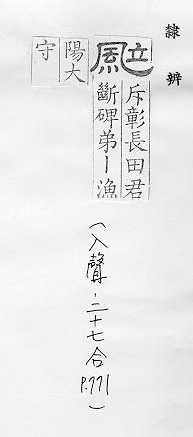 隸辨
䬃
斥彰長田君
斷碑弟｜漁
陽大
守
(入聲·二十七合 P.771)